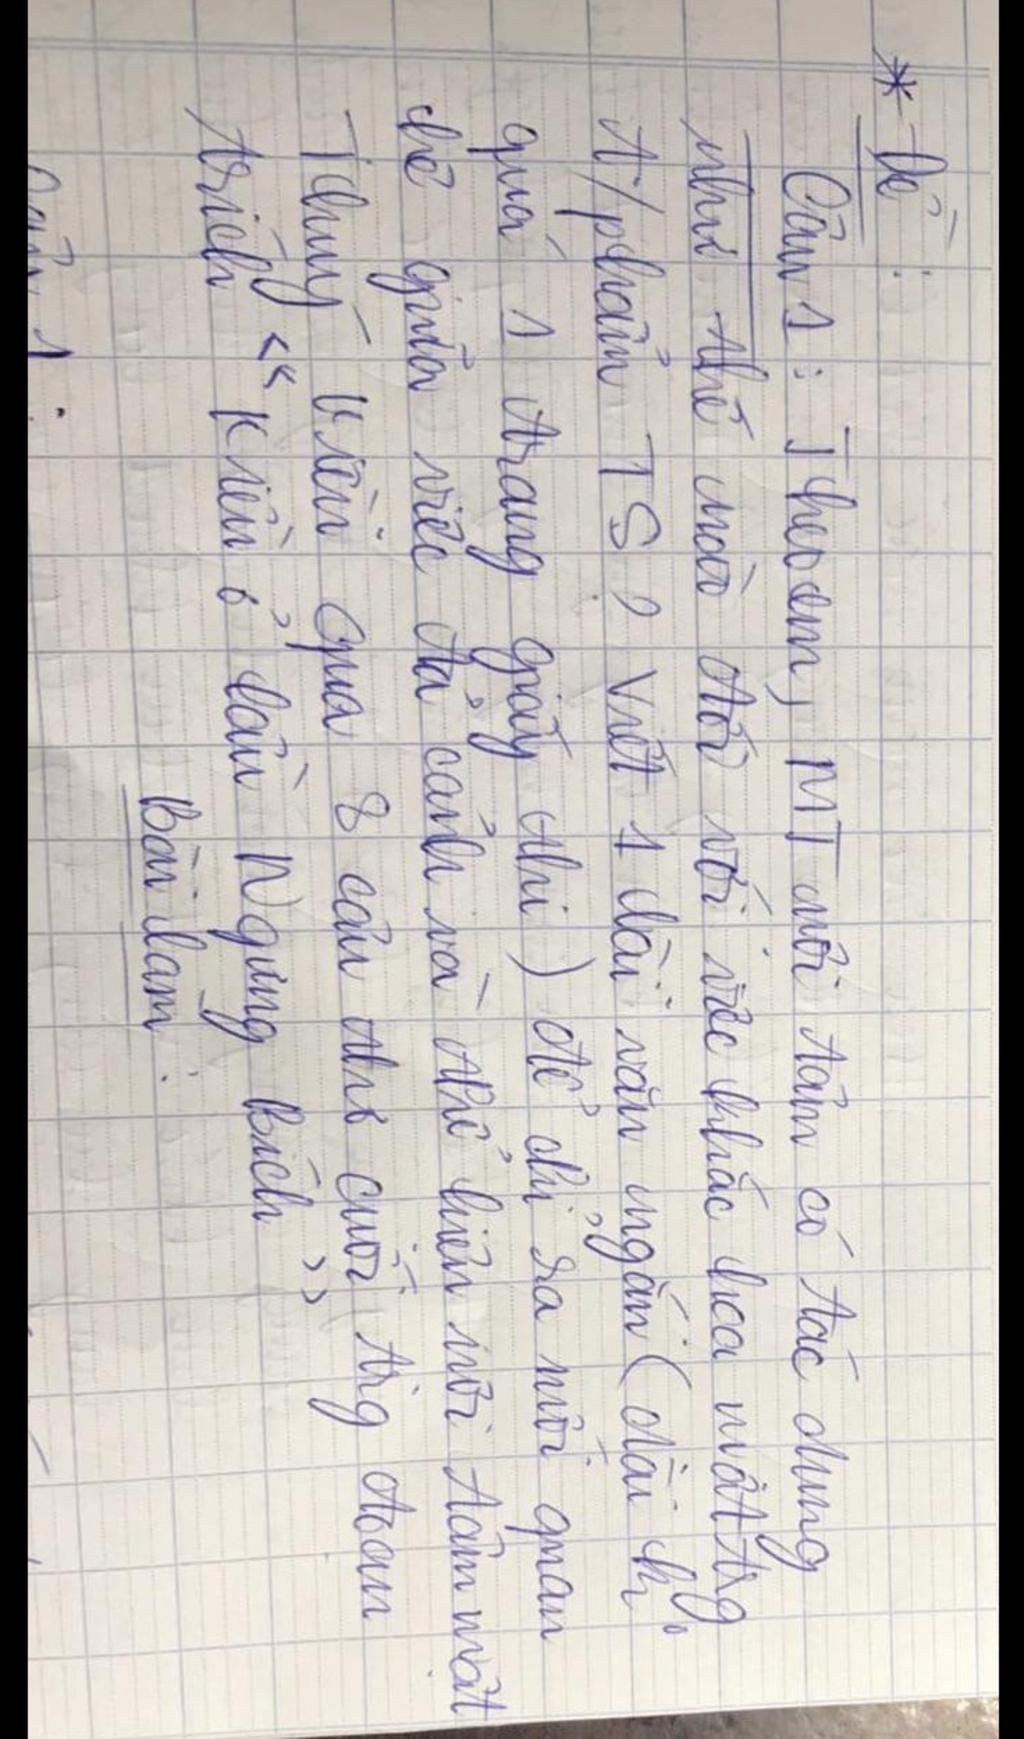 * Đề:
Câu 1: Theo em, MT nội tâm có tác dụng
như thế nào đối với việc khắc họa n/vật trg
t/phẩm TS? Viết 1 bài văn ngắn (dài kg
quá 1 trang giấy thi) để chỉ ra mối quan
hệ giữa việc tả cảnh và thể hiện nội tâm n.vật
Thúy Kiều qua 8 câu thơ cuối trg đoạn
trích "Kiều ở lầu Ngưng Bích"
Bài làm:
Câu 1: